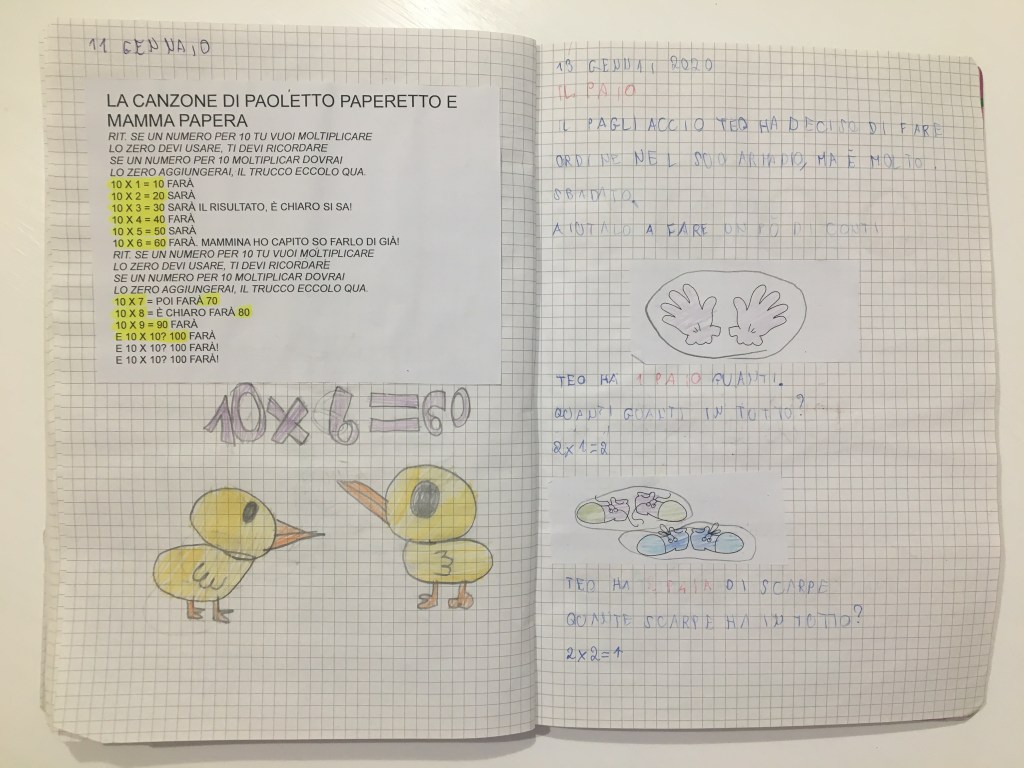 11 GENNAIO
LA CANZONE DI PAOLETTO PAPERETTO E
MAMMA PAPERA
RIT. SE UN NUMERO PER 10 TU VUOI MOLTIPLICARE
LO ZERO DEVI USARE, TI DEVI RICORDARE
SE UN NUMERO PER 10 MOLTIPLICAR DOVRAI
LO ZERO AGGIUNGERAI, IL TRUCCO ECCOLO QUA.
10 X 1 = 10 FARÀ
10 X 2 = 20 SARÀ
10 X 3 = 30 SARÀ IL RISULTATO, È CHIARO SI SA!
10 X 4 = 40 FARÀ
10 X 5 = 50 SARÀ
10 X 6 = 60 FARÀ, MAMMINA HO CAPITO SO FARLO DI GIÀ!
RIT. SE UN NUMERO PER 10 TU VUOI MOLTIPLICARE
LO ZERO DEVI USARE, TI DEVI RICORDARE
SE UN NUMERO PER 10 MOLTIPLICAR DOVRAI
LO ZERO AGGIUNGERAI, IL TRUCCO ECCOLO QUA.
10 X 7 = POI FARÀ 70
10 X 8 = È CHIARO FARÀ 80
10 X 9 = 90 FARÀ
E 10 X 10? 100 FARÀ
E 10 X 10? 100 FARÀ!
E 10 X 10? 100 FARÀ!
10 X 6 = 60
13 GENNAI 2020
IL PAIO
IL PAGLIACCIO TEO HA DECISO DI FARE
ORDINE NEL SUO ARMADIO, MA È MOLTO
SBADATO.
AIUTALO A FARE UN PÒ DI CONTI
TEO HA 1 PAIO GUANTI.
QUANTI GUANTI IN TOTTO?
2X1=2
TEO HA 2 PAIA DI SCARPE
QUANTE SCARPE HA IN TOTTO?
2X2=4